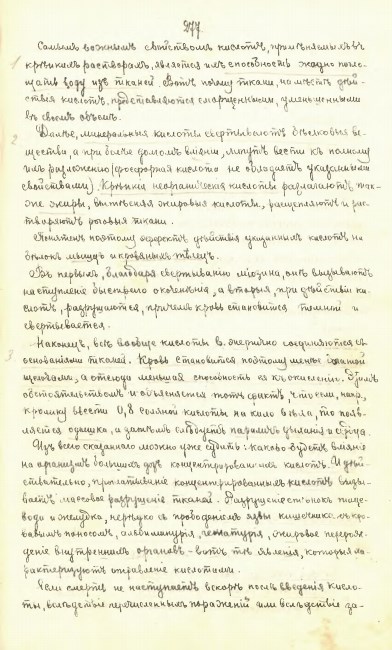 277
Самымъ важнымъ свойствомъ кислотъ, примѣняемыхъ въ
1 крѣпкихъ растворахъ, является ихъ способность жадно погло-
щать воду изъ тканей. Вотъ почему ткани, на мѣстѣ дѣй-
ствія кислотъ, представляются сморщенными, уменьшенными
въ своемъ объемѣ.
2 Далѣе, минеральныя кислоты свертываютъ бѣлковыя ве-
щества, а при болѣе долгомъ вліяніи, могутъ вести къ полному
ихъ разложенію (фосфорная кислота не обладаетъ указанными
свойствами). Крѣпкія неорганическія кислоты разлагаютъ так-
же жиры, вытѣсняя жировыя кислоты, расщепляютъ и рас-
творяютъ роговыя ткани.
Понятенъ поэтому эффектъ дѣйствія указанныхъ кислотъ на
бѣлокъ мышцъ и кровяныхъ тѣлецъ.
Въ первыхъ, благодаря свертыванію міозина, онѣ вызываютъ
наступленіе быстраго окоченѣнія, а вторыя, при дѣйствіи ки-
слотъ, разрушаются, причемъ кровь становится темной и
свертывается.
3 Наконецъ, всѣ вообще кислоты энергично соединяются съ
основаніями тканей. Кровь становится поэтому менѣе богатой
щелочами, а отсюда меньшая способность ея къ окисленію. Этимъ
обстоятельствомъ и объясняется тотъ фактъ, что если, напр.,
кролику ввести 0,8 соляной кислоты на кило вѣса, то появ-
ляется одышка, а затѣмъ слѣдуетъ параличъ дыханія и сердца.
Изъ всего сказаннаго можно уже судить: каково будетъ вліяніе
на организмъ большихъ дозъ концентрированныхъ кислотъ. И дѣй-
ствительно, проглатываніе концентрированныхъ кислотъ вызы-
ваетъ массовое разрушеніе тканей. Разрушеніе стѣнокъ пище-
вода и желудка, нерѣдко съ прободеніемъ, язвы кишечника съ кро-
вавымъ поносомъ, альбиминурія, гематурія, жировое перерож-
деніе внутреннихъ органовъ - вотъ тѣ явленія, которыя ха-
рактеризуютъ отравленіе кислотами.
Если смерть не наступаетъ вскорѣ послѣ введенія кисло-
ты, вслѣдствіе перечисленныхъ пораженій или вслѣдствіе за-